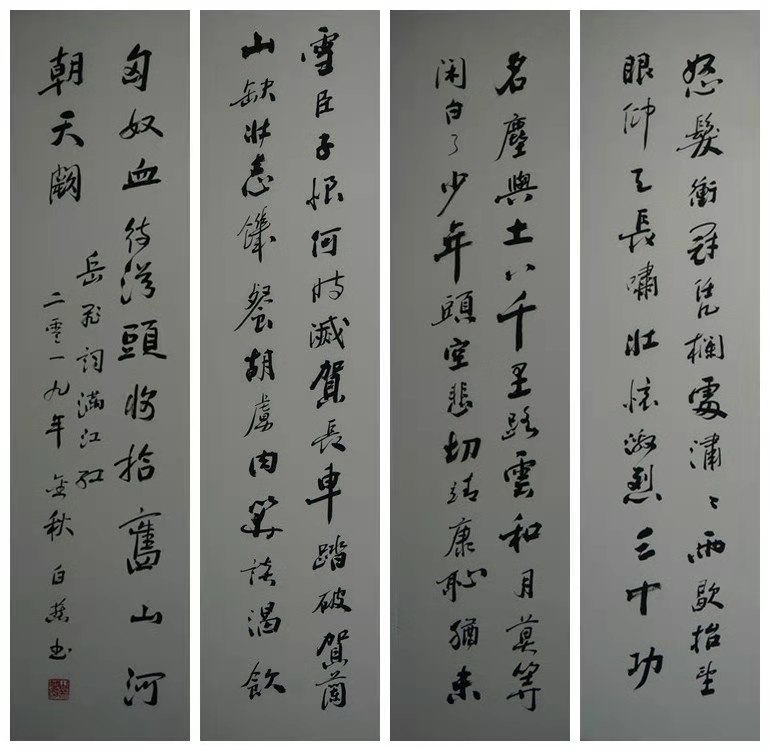 怒髮衝冠凭欄處瀟々雨歇抬望
眼仰天長嘯壯懷激烈三十功
名塵與土八千里路雲和月莫等
闲白了少年頭空悲切靖康恥猶未
雪臣子恨何時滅賀長車踏破賀蘭
山缺壯志饑餐胡虜肉笑談渴飲
匈奴血待從頭收拾舊山河
朝天闕
岳飛詞滿江红
二零一九年金秋白燕书